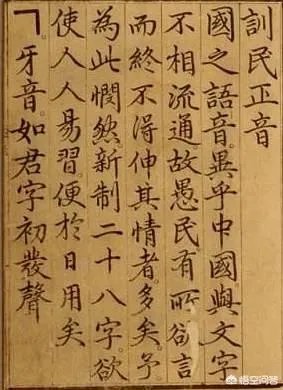 訓民正音
國之語音。異乎中國。與文字
不相流通。故愚民有所欲言
而終不得伸其情者。多矣。予
為此憫然。新制二十八字。欲
使人人易習。便於日用矣
ㄱ。牙音。如君字初發聲
悟空问答